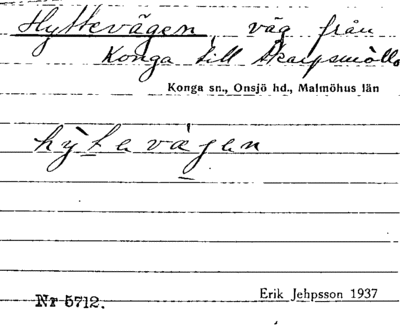 Hyttevägen, väg från
Konga till Skarpsmölla
Konga sn., Onsjö hd., Malmöhus län
hỳtevàgen
Erik Jehpsson 1937
Nr 5712.